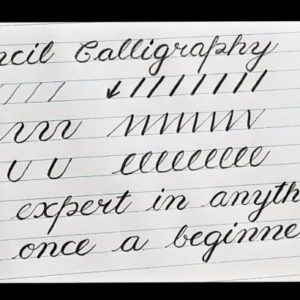 ncil Calligraphy
expert in anyth
once a beginne